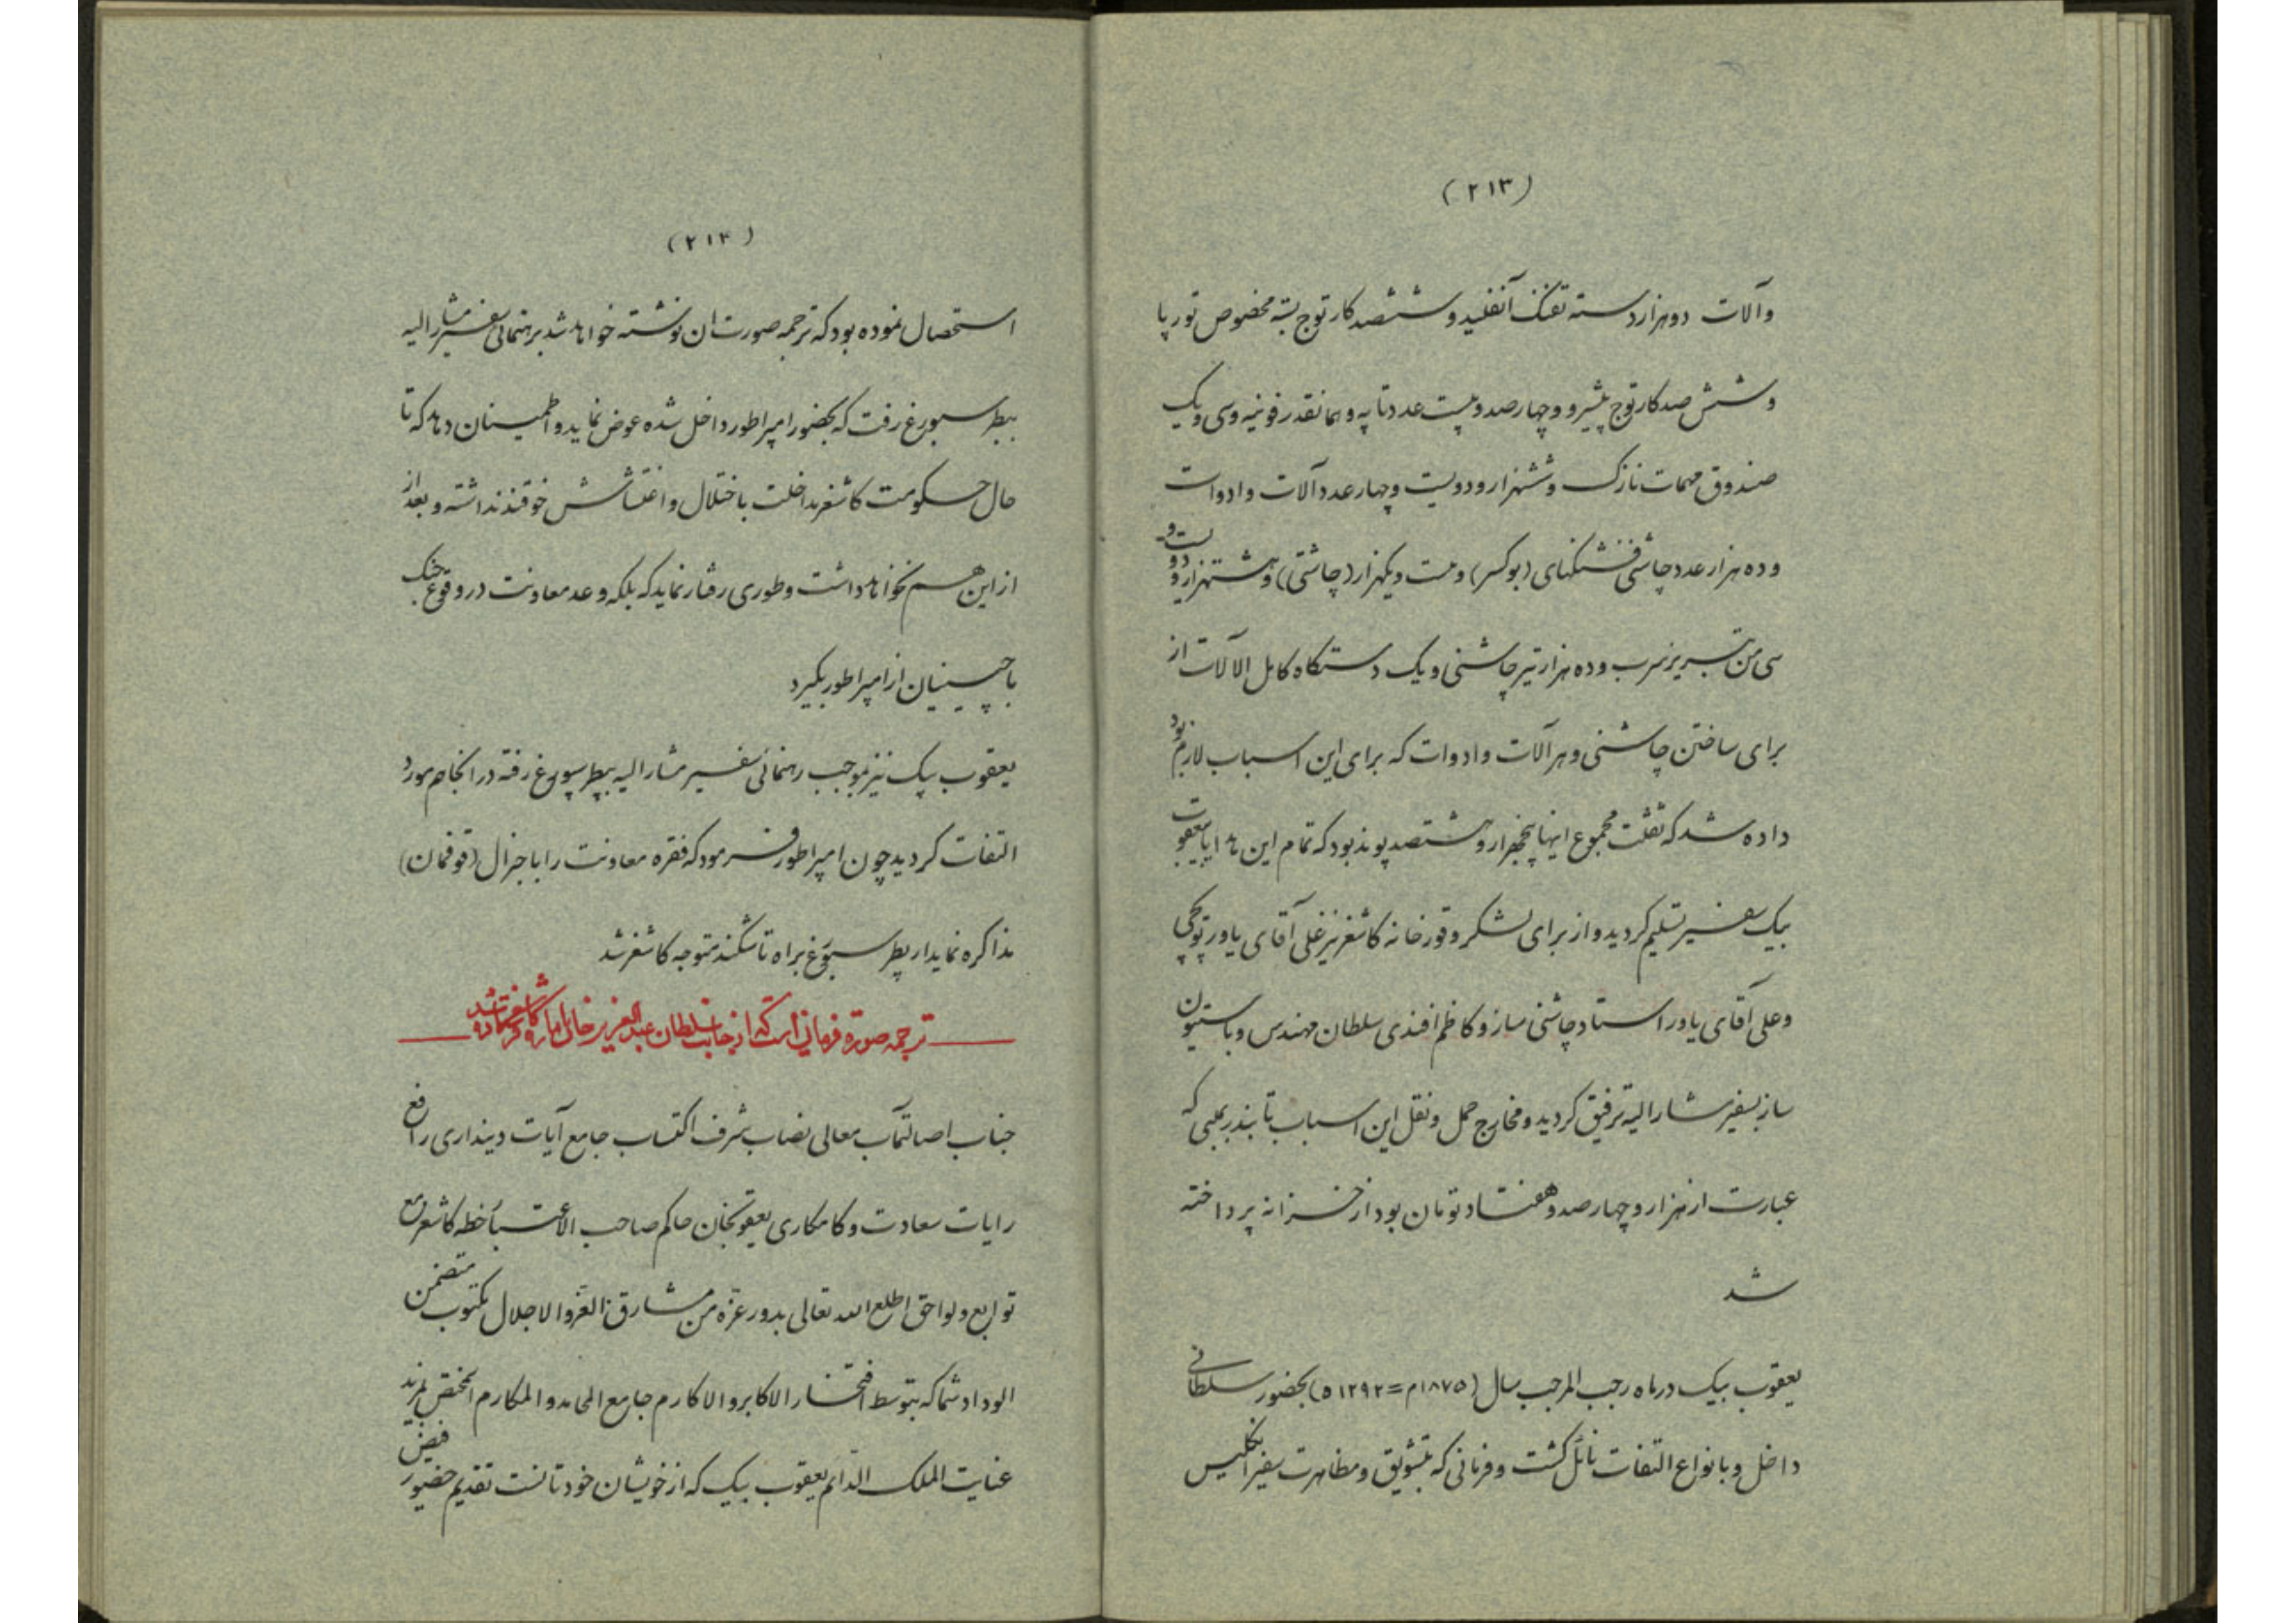 (۲۱۳)
وآلات دوهزار دسته تفنگ آنفلید و ششصد کارتوج بسته مخصوص تورپا
و شش صد کارتوج پیشرو و چهارصد و بیست عدد تاپه و همانقدر فونیه و سی و یک
صندوق مهمات نازک و ششهزار و دویست و چهار عدد آلات و ادوات
و ده هزار عدد چاشنی فشنگهای (بوکسر) و بیست و یکهزار (چاشنی) و هشتهزار و دویست و
سی من تبریز سرب و ده هزار تیر چاشنی و یک دستگاه کامل الالات از
برای ساختن چاشنی و هر آلات و ادوات که برای این اسباب لازم بود
داده شد که ثقلت مجموع اینها پنجهزار و هشتصد پوند بود که تمام این هدایا بیعقوب
بیک سفیر تسلیم گردید و از برای لشکر و قورخانه کاشغر نیز علی آقای یاور توپچی
و علی آقای یاور استاد چاشنی ساز و کاظم افندی سلطان مهندس و باستیون
ساز بسفیر مشارالیه ترفیق گردید و مخارج حمل و نقل این اسباب تا بندر بمبی که
عبارت از هزار و چهارصد و هفتاد تومان بود از خزانه پرداخته
شد
یعقوب بیک در ماه رجب المرجب سال (۱۸۷۵م=۱۲۹۲ه) بحضور سلطانی
داخل و بانواع التفات نائل گشت و فرمانی که بتشویق و مظاهرت سفیر انگلیس
(۲۱۴)
استحصال نموده بود که ترجمه صورت ان نوشته خواهد شد برهنمائی سفیر مشارالیه
بپطرسبورغ رفت که بحضور امپراطور داخل شده عوض نماید و اطمینان دهد که تا
حال حکومت کاشغر مداخلت باختلال و اغتشاش خوقند نداشته و بعد از
از این هم نخواهد داشت و طوری رفتار نماید که بلکه وعد معاونت در وقوع جنگ
با چینیان از امپراطور بگیرد
یعقوب بیک نیز بموجب رهنمائی سفیر مشارالیه بپطرسبورغ رفته در انجا هم مورد
التفات گردید چون امپراطور فرمود که فقره معاونت را با جنرال (قوفمان)
مذاکره نماید از پطرسبورغ براه تاشکند متوجه کاشغر شد
ترجمه صورة فرمانی است که از جانب سلطان عبدالعزیز خان بامارة کاشغر فرستاده شد
جناب اصالتمآب معالی نصاب شرف اکتساب جامع آیات دینداری رافع
رایات سعادت و کامکاری یعقوبخان حاکم صاحب الاعتبار خطه کاشغر مع
توابع و لواحق اطلع الله تعالی بدور عزه من مشارق العز والاجلال مکتوب متضمن
الوداد شما که بتوسط افتخار الاکابر و الاکارم جامع المحامد و المکارم المختص بمزید
عنایت الملک الدائم یعقوب بیک که از خویشان خودتانست تقدیم حضور فیض